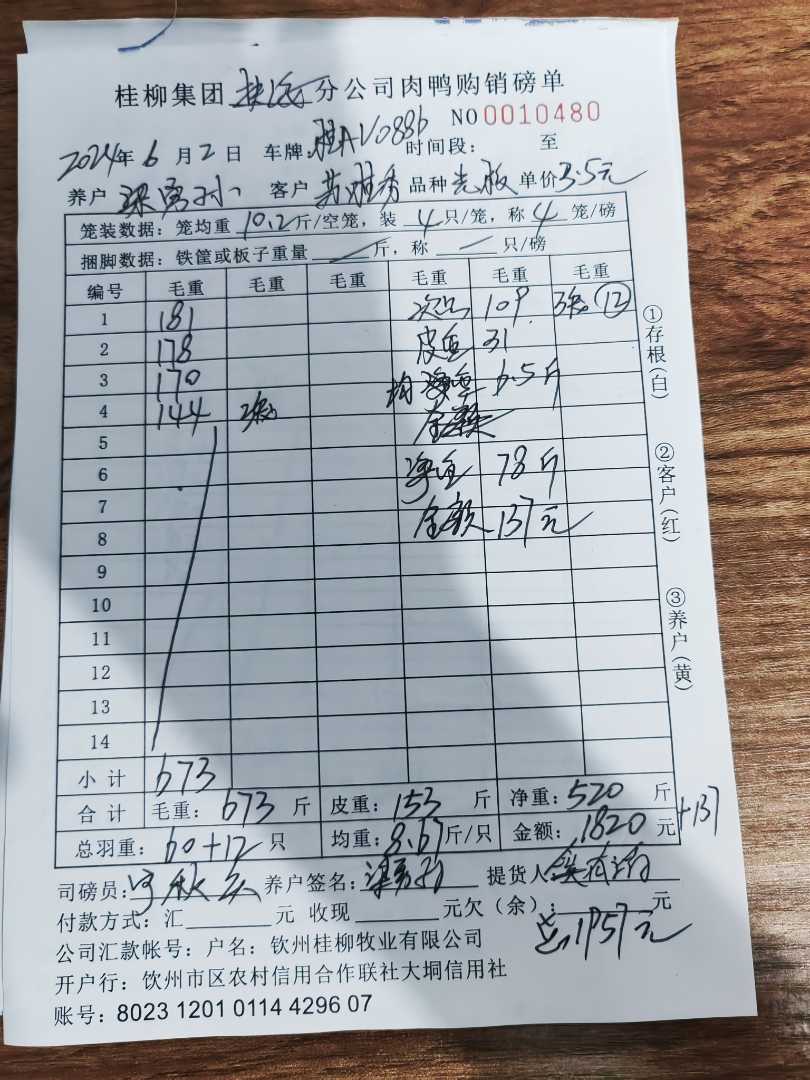 桂柳集团 分公司肉鸭购销磅单
NO 0010480
2024年 6 月 2 日 车牌: 桂AV088b 时间段: 至
养户 客户 苏胜秀 品种 单价 3.5元
笼装数据: 笼均重 10.2 斤/空笼, 装 4 只/笼, 称 4 笼/磅
捆脚数据: 铁筐或板子重量 斤, 称 只/磅
编号 毛重 毛重 毛重 毛重 毛重 毛重
1 181 次品 109 3笼 ⑫
2 178 皮重 31
3 170 均 6.5斤
4 144 3笼 金额
5
6 净重 78斤
7
8 金额 137元
9
10
11
12
13
14
小计 673
合计 毛重: 673 斤 皮重: 153 斤 净重: 520 斤
总羽重: 60+12 只 均重: 8.67 斤/只 金额: 1820 元 +137
司磅员: 养户签名: 提货人
付款方式: 汇 元 收现 元 欠(余): 元
总1957元
公司汇款帐号: 户名: 钦州桂柳牧业有限公司
开户行: 钦州市区农村信用合作联社大垌信用社
账号: 8023 1201 0114 4296 07
①存根(白)
②客户(红)
③养户(黄)